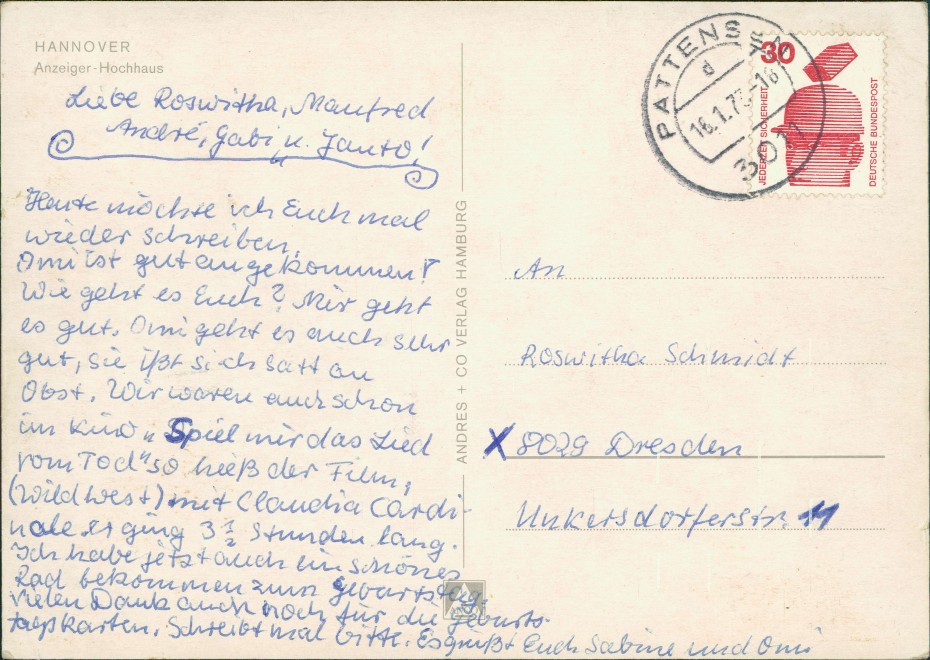 HANNOVER
Anzeiger-Hochhaus
Liebe Roswitha, Manfred
André, Gabi u. Janto!
Heute möchte ich Euch mal
wieder schreiben.
Omi ist gut angekommen!
Wie geht es Euch? Mir geht
es gut. Omi geht es auch sehr
gut, sie ißt sich satt an
Obst. Wir waren auch schon
im Kino „Spiel mir das Lied
vom Tod" so hieß der Film,
(Wildwest) mit Claudia Cardi-
nale es ging 3 1/2 Stunden lang.
Ich habe jetzt auch ein schönes
Rad bekommen zum Geburtstag.
Vielen Dank auch noch für die Geburts-
tagskarten. Schreibt mal bitte. Es grüßt Euch Sabine und Omi
ANDRES + CO VERLAG HAMBURG
PATTENSEN
d
16.1.7 -16
3011
30
JEDERZEIT SICHERHEIT
DEUTSCHE BUNDESPOST
An
Roswitha Schmidt
X 8029 Dresden
Unkersdorferstr. 11